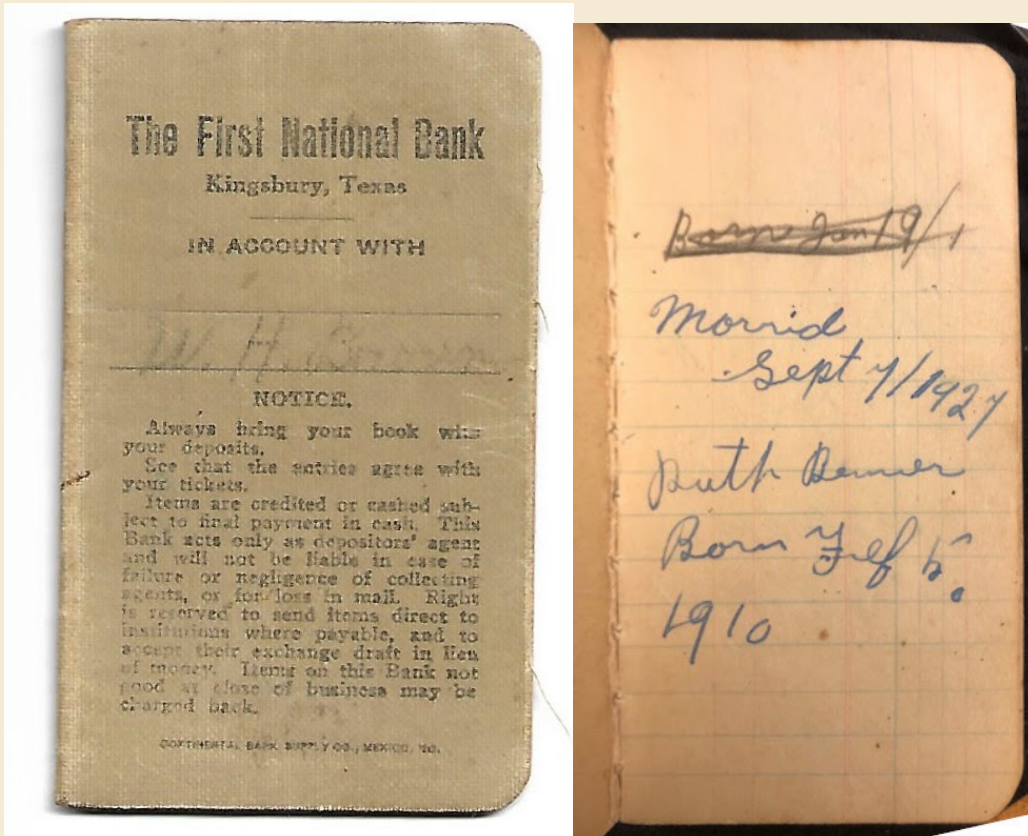 The First National Bank
Kingsbury, Texas
IN ACCOUNT WITH
W. H. Brown
NOTICE.
Always bring your book with
your deposits.
See that the entries agree with
your tickets.
Items are credited or cashed sub-
ject to final payment in cash. This
Bank acts only as depositors' agent
and will not be liable in case of
failure or negligence of collecting
agents, or for loss in mail. Right
is reserved to send items direct to
institutions where payable, and to
accept their exchange draft in lieu
of money. Items on this Bank not
good at close of business may be
charged back.
CONTINENTAL BANK SUPPLY CO., MEXICO, MO.
Born Jan 19/1
Morrid
Sept 7/1927
Ruth
Born Feb 5.
1910